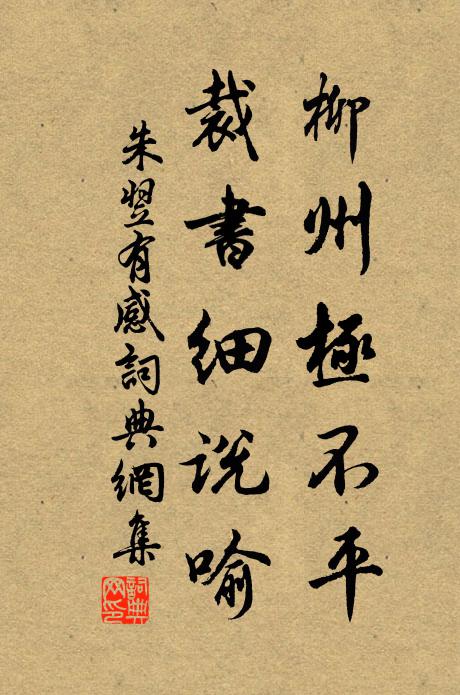 柳州極不平
裁書細説喻
朱翌有感詞典網集
詞典網印